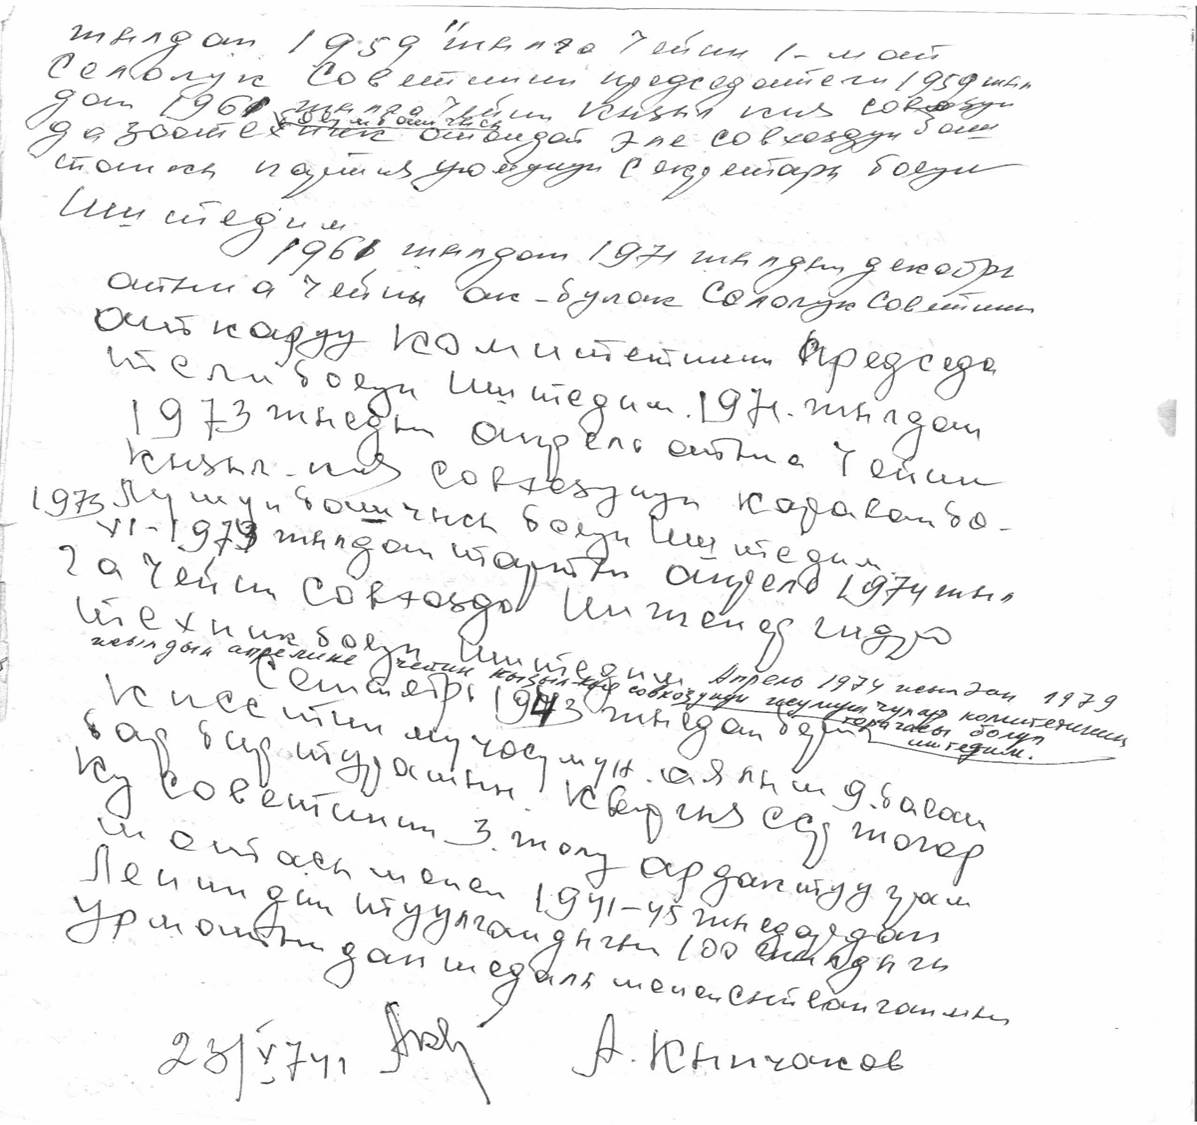 жылдан 1959 жылга чейин 1-май
Селолук Советинин председатели 1959 жыл
дан 1961 жылга чейин Кызыл кия совхозун
да зоотехник ошондой эле совхоздун баш
талгыч партия уюмунун Секретарь болуп
Иштедим
1961 жылдан 1971 жылдын декабрь
айына чейин ак-булак Селолук Советинин
аткаруу Комитетинин Председа
тели болуп Иштедим. 1971. жылдан
1973 жылдын апрель айына чейин
Кызыл-кия совхозунун
башчысы болуп Иштедим.
1973
VI-1973 жылдан тартып апрель 1974 жыл
га чейин Совхоздо Инженер гидро
техник болуп Иштедим. Апрель 1974 жылдан 1979
жылдын апрелине чейин Кызыл-кия совхозунун жумушчулар комитетинин
төрагасы болуп
иштедим.
Сентябрь 1943 жылдан бери
КПССтин мучосумун. аялым 9. балам
бар бир турамын.
Ку Советинин 3. жолу ардактуу грам
матасы менен 1941-45 жылдардан
Лениндин туулгандыгын 100 жылдыгы
урматынан медаль менен сыйлангамын
23/V 74ч А. Кыпчаков